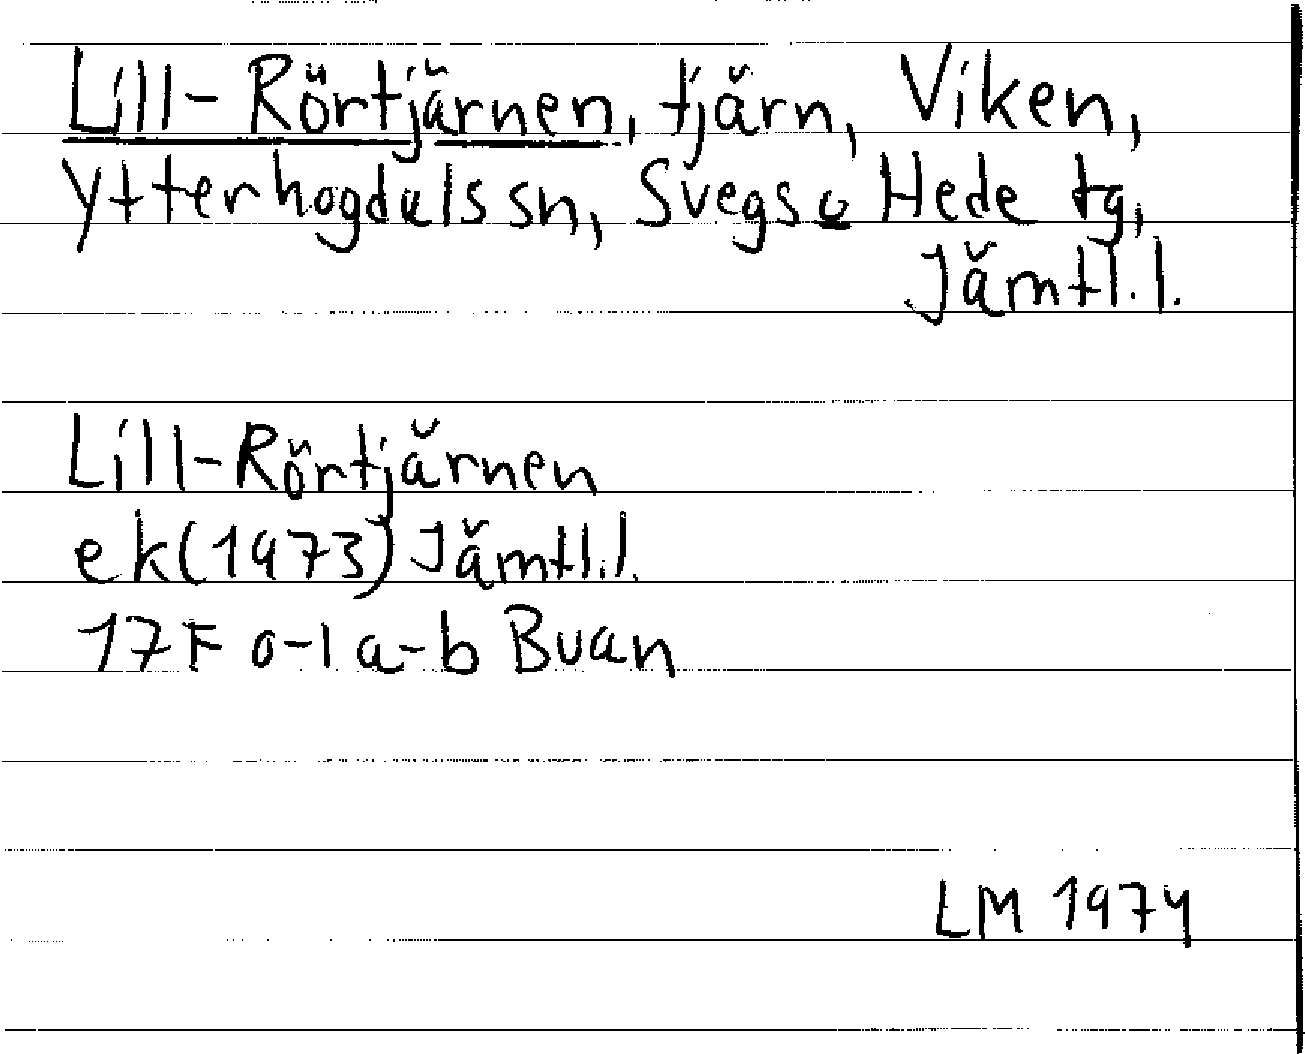 Lill-Rörtjärnen, tjärn, Viken,
Ytterhogdals sn, Svegs o Hede tg,
Jämtl. l.
Lill-Rörtjärnen
ek (1973) Jämtl. l.
17F 0-1 a-b Buan
LM 1974